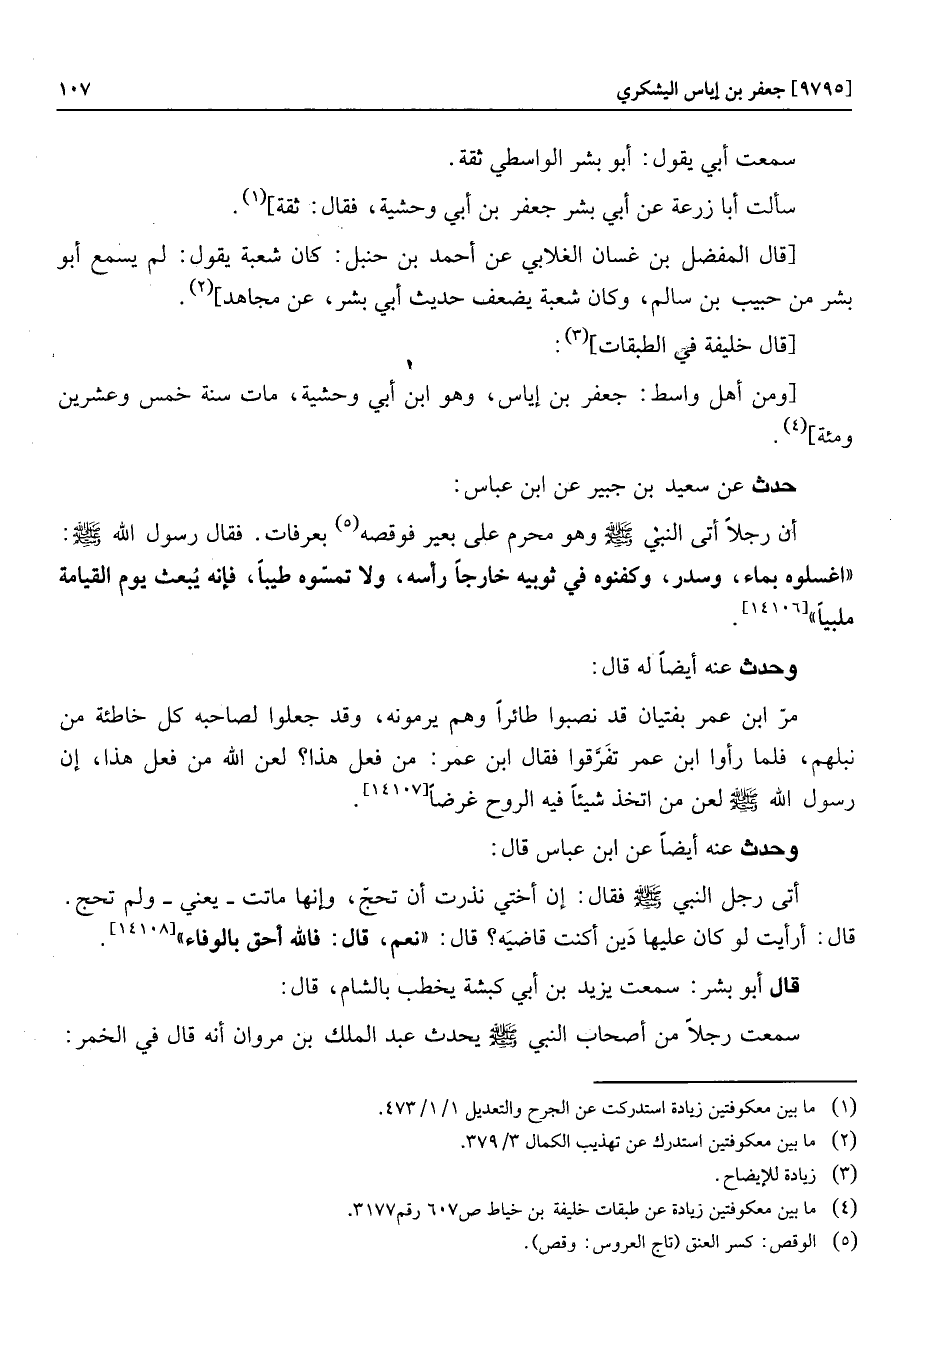 [٩٧٩٥] جعفر بن إياس اليشكري ١٠٧
سمعت أبي يقول: أبو بشر الواسطي ثقة.
سألت أبا زرعة عن أبي بشر جعفر بن أبي وحشية، فقال: ثقة](١).
[قال المفضل بن غسان الغلابي عن أحمد بن حنبل: كان شعبة يقول: لم يسمع أبو
بشر من حبيب بن سالم، وكان شعبة يضعف حديث أبي بشر، عن مجاهد](٢).
[قال خليفة في الطبقات](٣):
[ومن أهل واسط: جعفر بن إياس، وهو ابن أبي وحشية، مات سنة خمس وعشرين
ومئة](٤).
حدث عن سعيد بن جبير عن ابن عباس:
أن رجلاً أتى النبي ﷺ وهو محرم على بعير فوقصه(٥) بعرفات. فقال رسول الله ﷺ:
«اغسلوه بماء، وسدر، وكفنوه في ثوبيه خارجاً رأسه، ولا تمسّوه طيباً، فإنه يُبعث يوم القيامة
ملبياً»[١٤١٠٦].
وحدث عنه أيضاً له قال:
مرّ ابن عمر بفتيان قد نصبوا طائراً وهم يرمونه، وقد جعلوا لصاحبه كل خاطئة من
نبلهم، فلما رأوا ابن عمر تفَرَّقوا فقال ابن عمر: من فعل هذا؟ لعن الله من فعل هذا، إن
رسول الله ﷺ لعن من اتخذ شيئاً فيه الروح غرضاً[١٤١٠٧].
وحدث عنه أيضاً عن ابن عباس قال:
أتى رجل النبي ﷺ فقال: إن أختي نذرت أن تحجّ، وإنها ماتت ـ يعني ـ ولم تحج.
قال: أرأيت لو كان عليها دَين أكنت قاضيَه؟ قال: «نعم، قال: فالله أحق بالوفاء»[١٤١٠٨].
قال أبو بشر: سمعت يزيد بن أبي كبشة يخطب بالشام، قال:
سمعت رجلاً من أصحاب النبي ﷺ يحدث عبد الملك بن مروان أنه قال في الخمر:
(١) ما بين معكوفتين زيادة استدركت عن الجرح والتعديل ١/ ١/ ٤٧٣.
(٢) ما بين معكوفتين استدرك عن تهذيب الكمال ٣/ ٣٧٩.
(٣) زيادة للإيضاح.
(٤) ما بين معكوفتين زيادة عن طبقات خليفة بن خياط ص٦٠٧ رقم٣١٧٧.
(٥) الوقص: كسر العنق (تاج العروس: وقص).